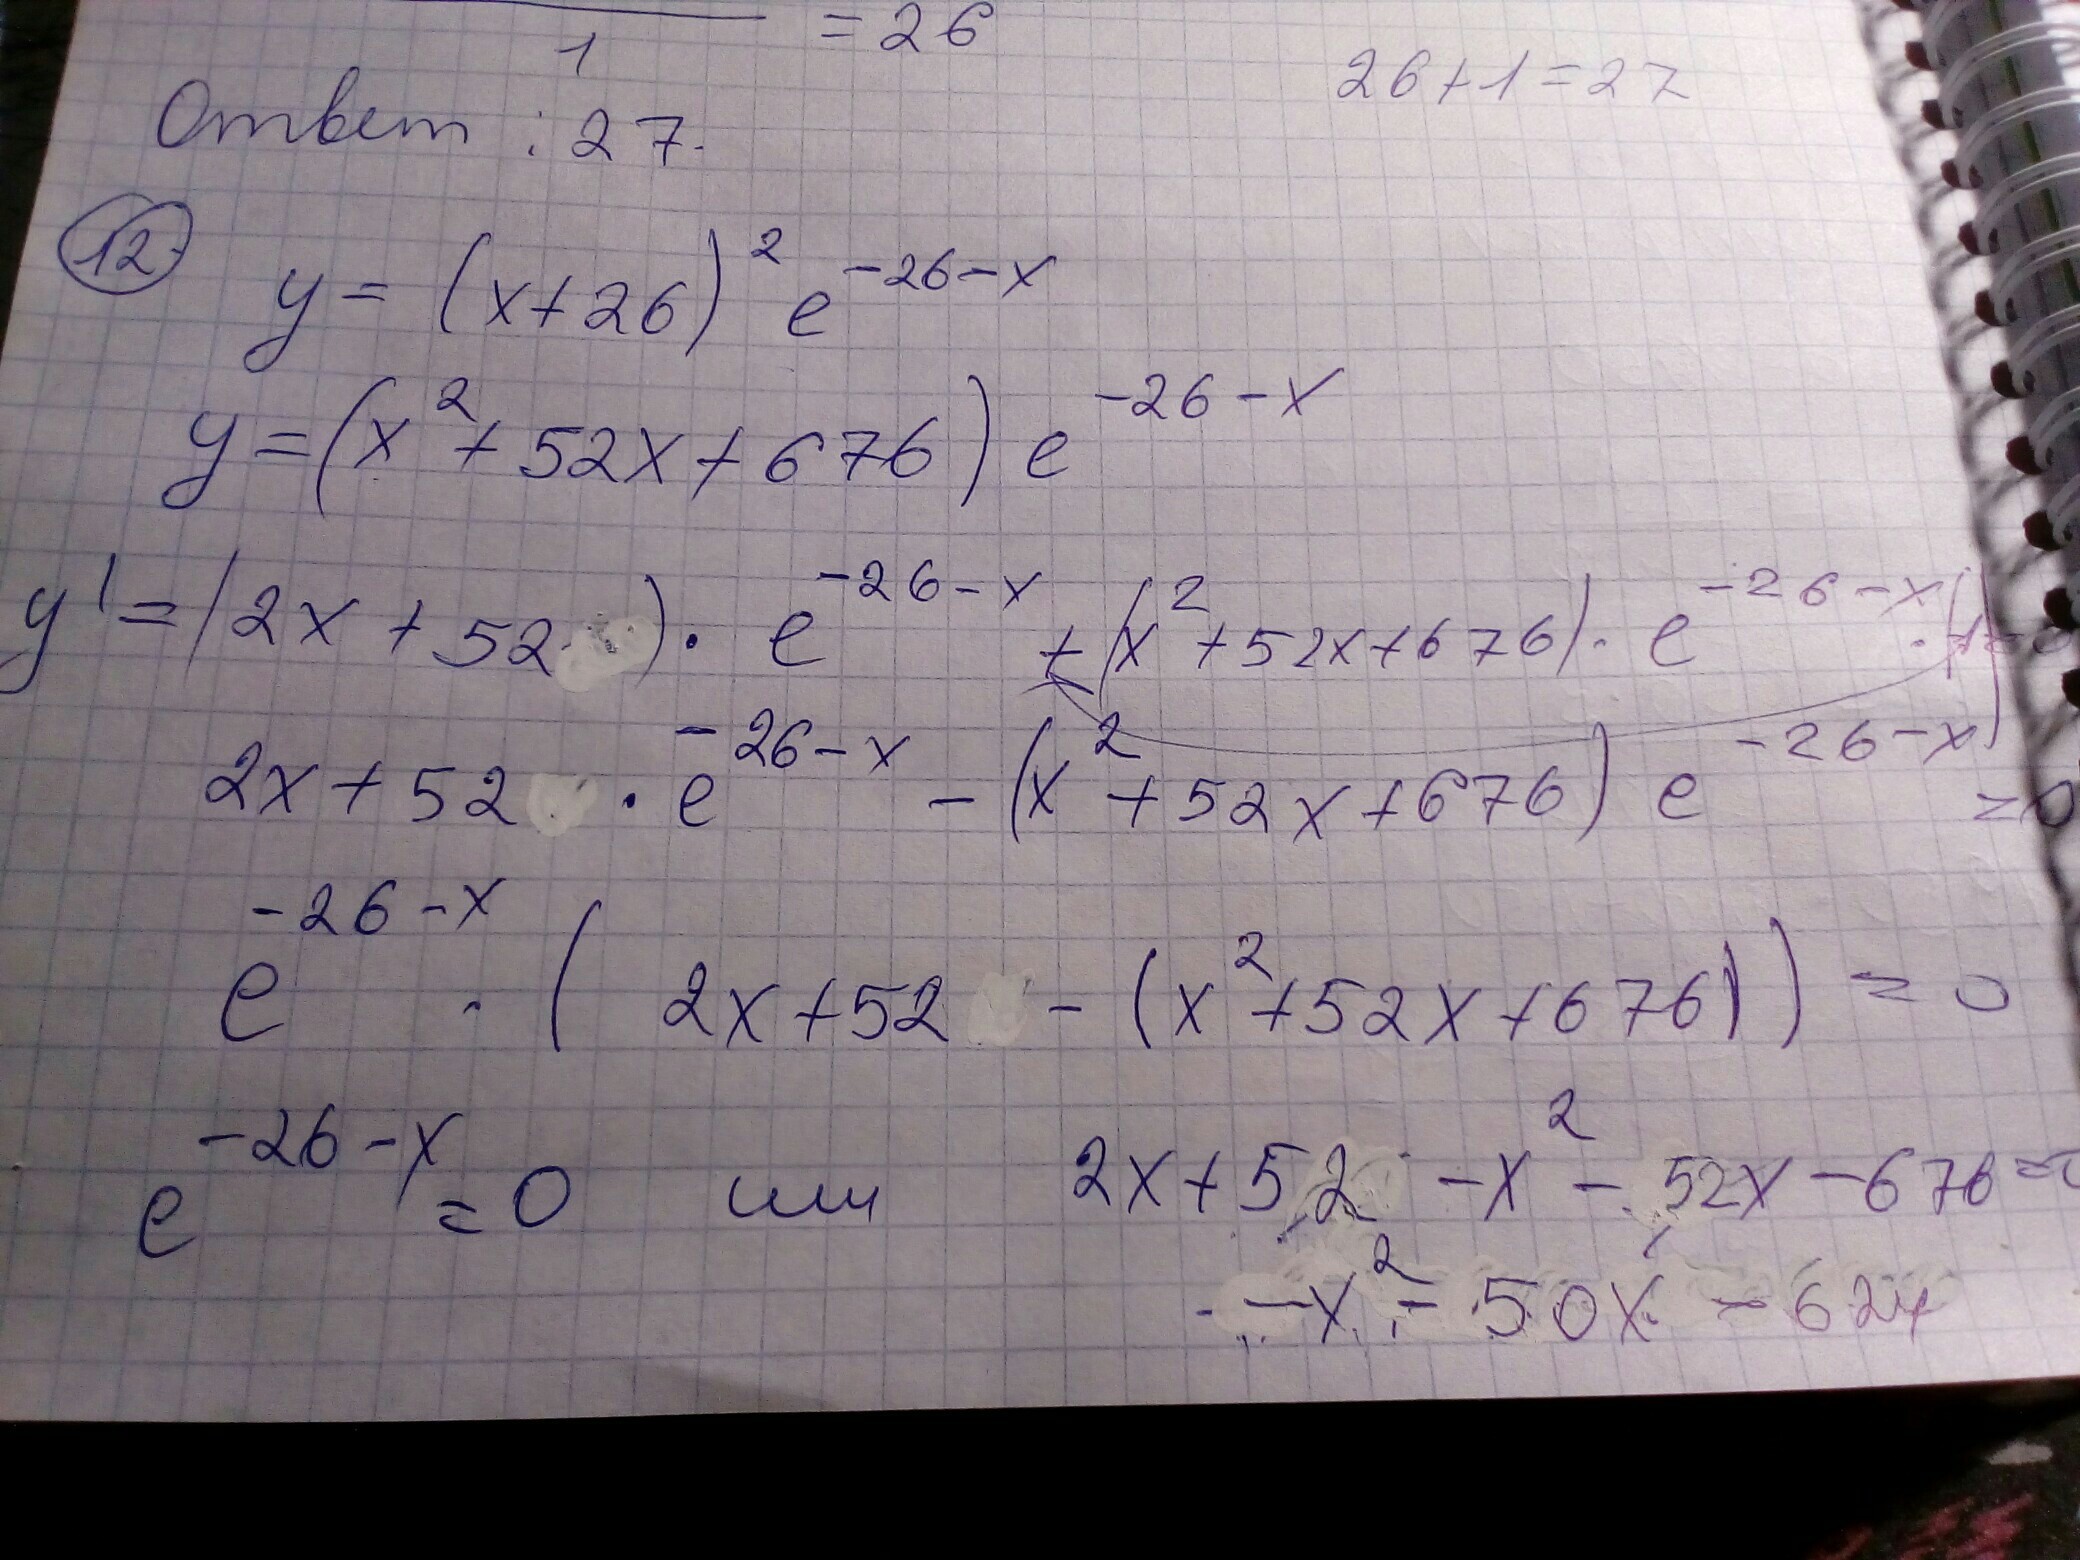 1 = 26
26+1=27
Ответ: 27.
12. y = (x+26)² e^(-26-x)
y=(x²+52x+676) e^(-26-x)
y'=(2x+52)· e^(-26-x) + (x²+52x+676)· e^(-26-x)
2x+52 · e^(-26-x) - (x²+52x+676) e^(-26-x) =0
e^(-26-x) · (2x+52 - (x²+52x+676)) = 0
e^(-26-x) = 0 или 2x+52 -x² - 52x - 676=0
-x² - 50x - 624